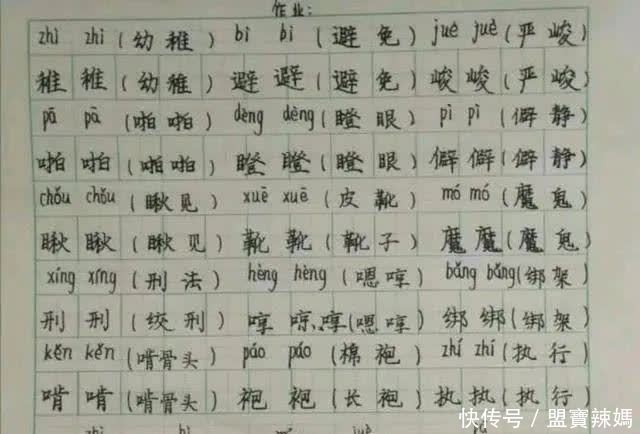 作业:
zhì zhì (幼稚) bì bì (避免) juè juè (严峻)
稚 稚 (幼稚) 避 避 (避免) 峻 峻 (严峻)
pā pā (啪啪) dèng dèng (瞪眼) pì pì (僻静)
啪 啪 (啪啪) 瞪 瞪 (瞪眼) 僻 僻 (僻静)
chǒu chǒu (瞅见) xuē xuē (皮靴) mó mó (魔鬼)
瞅 瞅 (瞅见) 靴 靴 (靴子) 魔 魔 (魔鬼)
xíng xíng (刑法) hèng hèng (嗯哼) bǎng bǎng (绑架)
刑 刑 (绞刑) 哼 哼 (嗯哼) 绑 绑 (绑架)
kěn kěn (啃骨头) páo páo (棉袍) zhí zhí (执行)
啃 啃 (啃骨头) 袍 袍 (长袍) 执 执 (执行)
快传号 / 盟寶辣媽